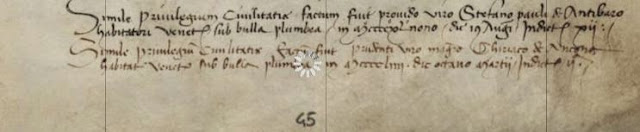 Simile Privilegium Civilitatis factum fuit provido viro Stefano pauli de Antibaro
habitatori Venet sub bulla plumbea in mccccxl nono die 19 Augi Indict xii
Simile privilegiu Civilitatis factu fuit prudenti viro magro Chiriaco de Ancona
habitat Venet sub bulla plumbea in mccccliiii die octavo Martii Indict ii
65